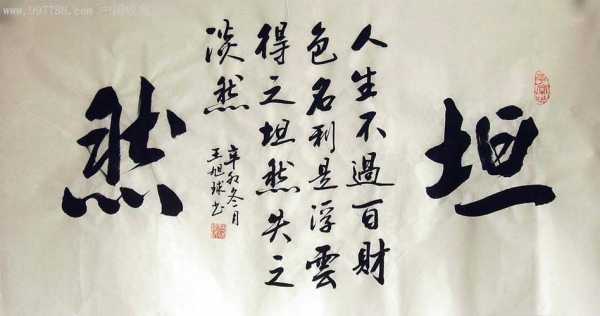 坦
人生不過百財
色名利是浮雲
得之坦然失之
淡然
辛卯冬月
王旭球书
然
www.997788.com